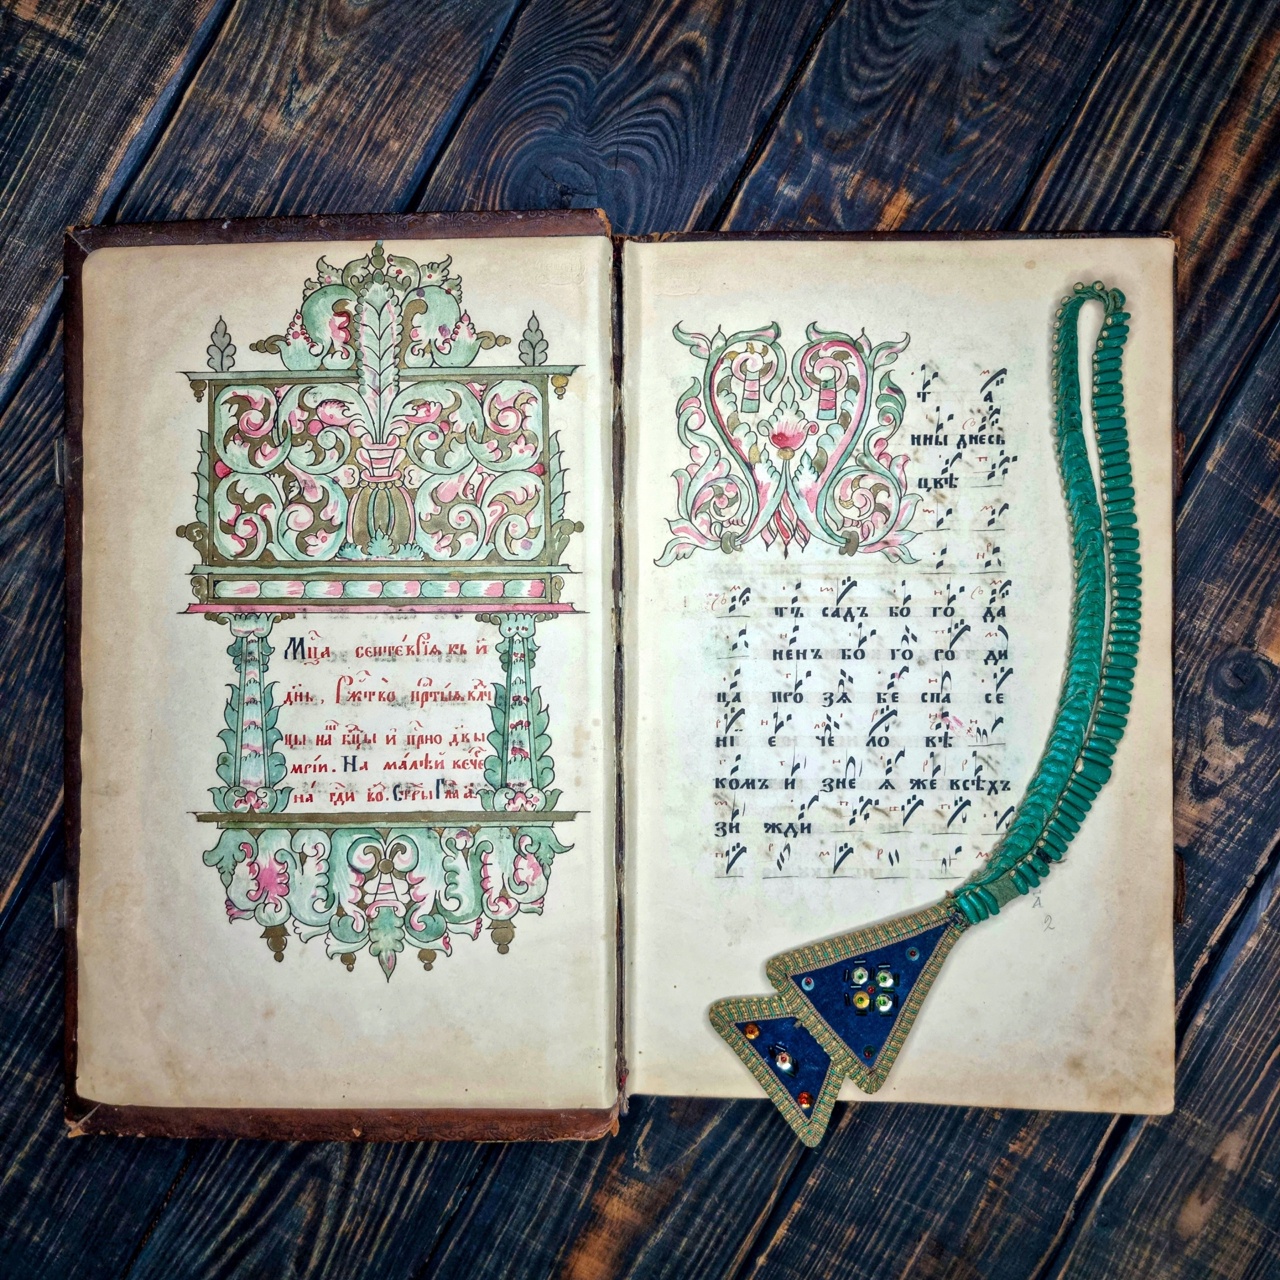 Мц҃а септе́врїѧ въ и҃
дн҃ь, Рж҃тво̀ прт҃ыѧ влⷣчи
цы на́ш бц҃ы и҆ при́сно дв҃ы
мр҃їи. На ма́лѣй вече́
на̀ гдⷭ҇и во. Стры Гла а҃.
Ѿ т а
нны днесь
цвѣ
тъ садъ бо го да
ненъ бо го ро ди
ца про зѧ бе спа се
нї е че ло вѣ
комъ и зне ѧ же всѣхъ
зи жди